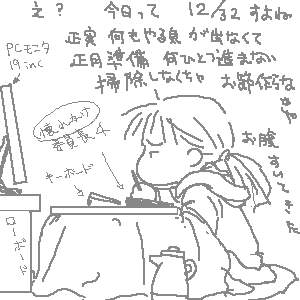 え？ 今日って 12/32 すよね
正実 何もやる気が出なくて
正月準備 何ひとつ進まない
掃除しなくちゃ お節作らな
きゃ
お腹すいてきた
PCモニタ
19inc
懐れなけ
委員長4
キーボード
ローボード